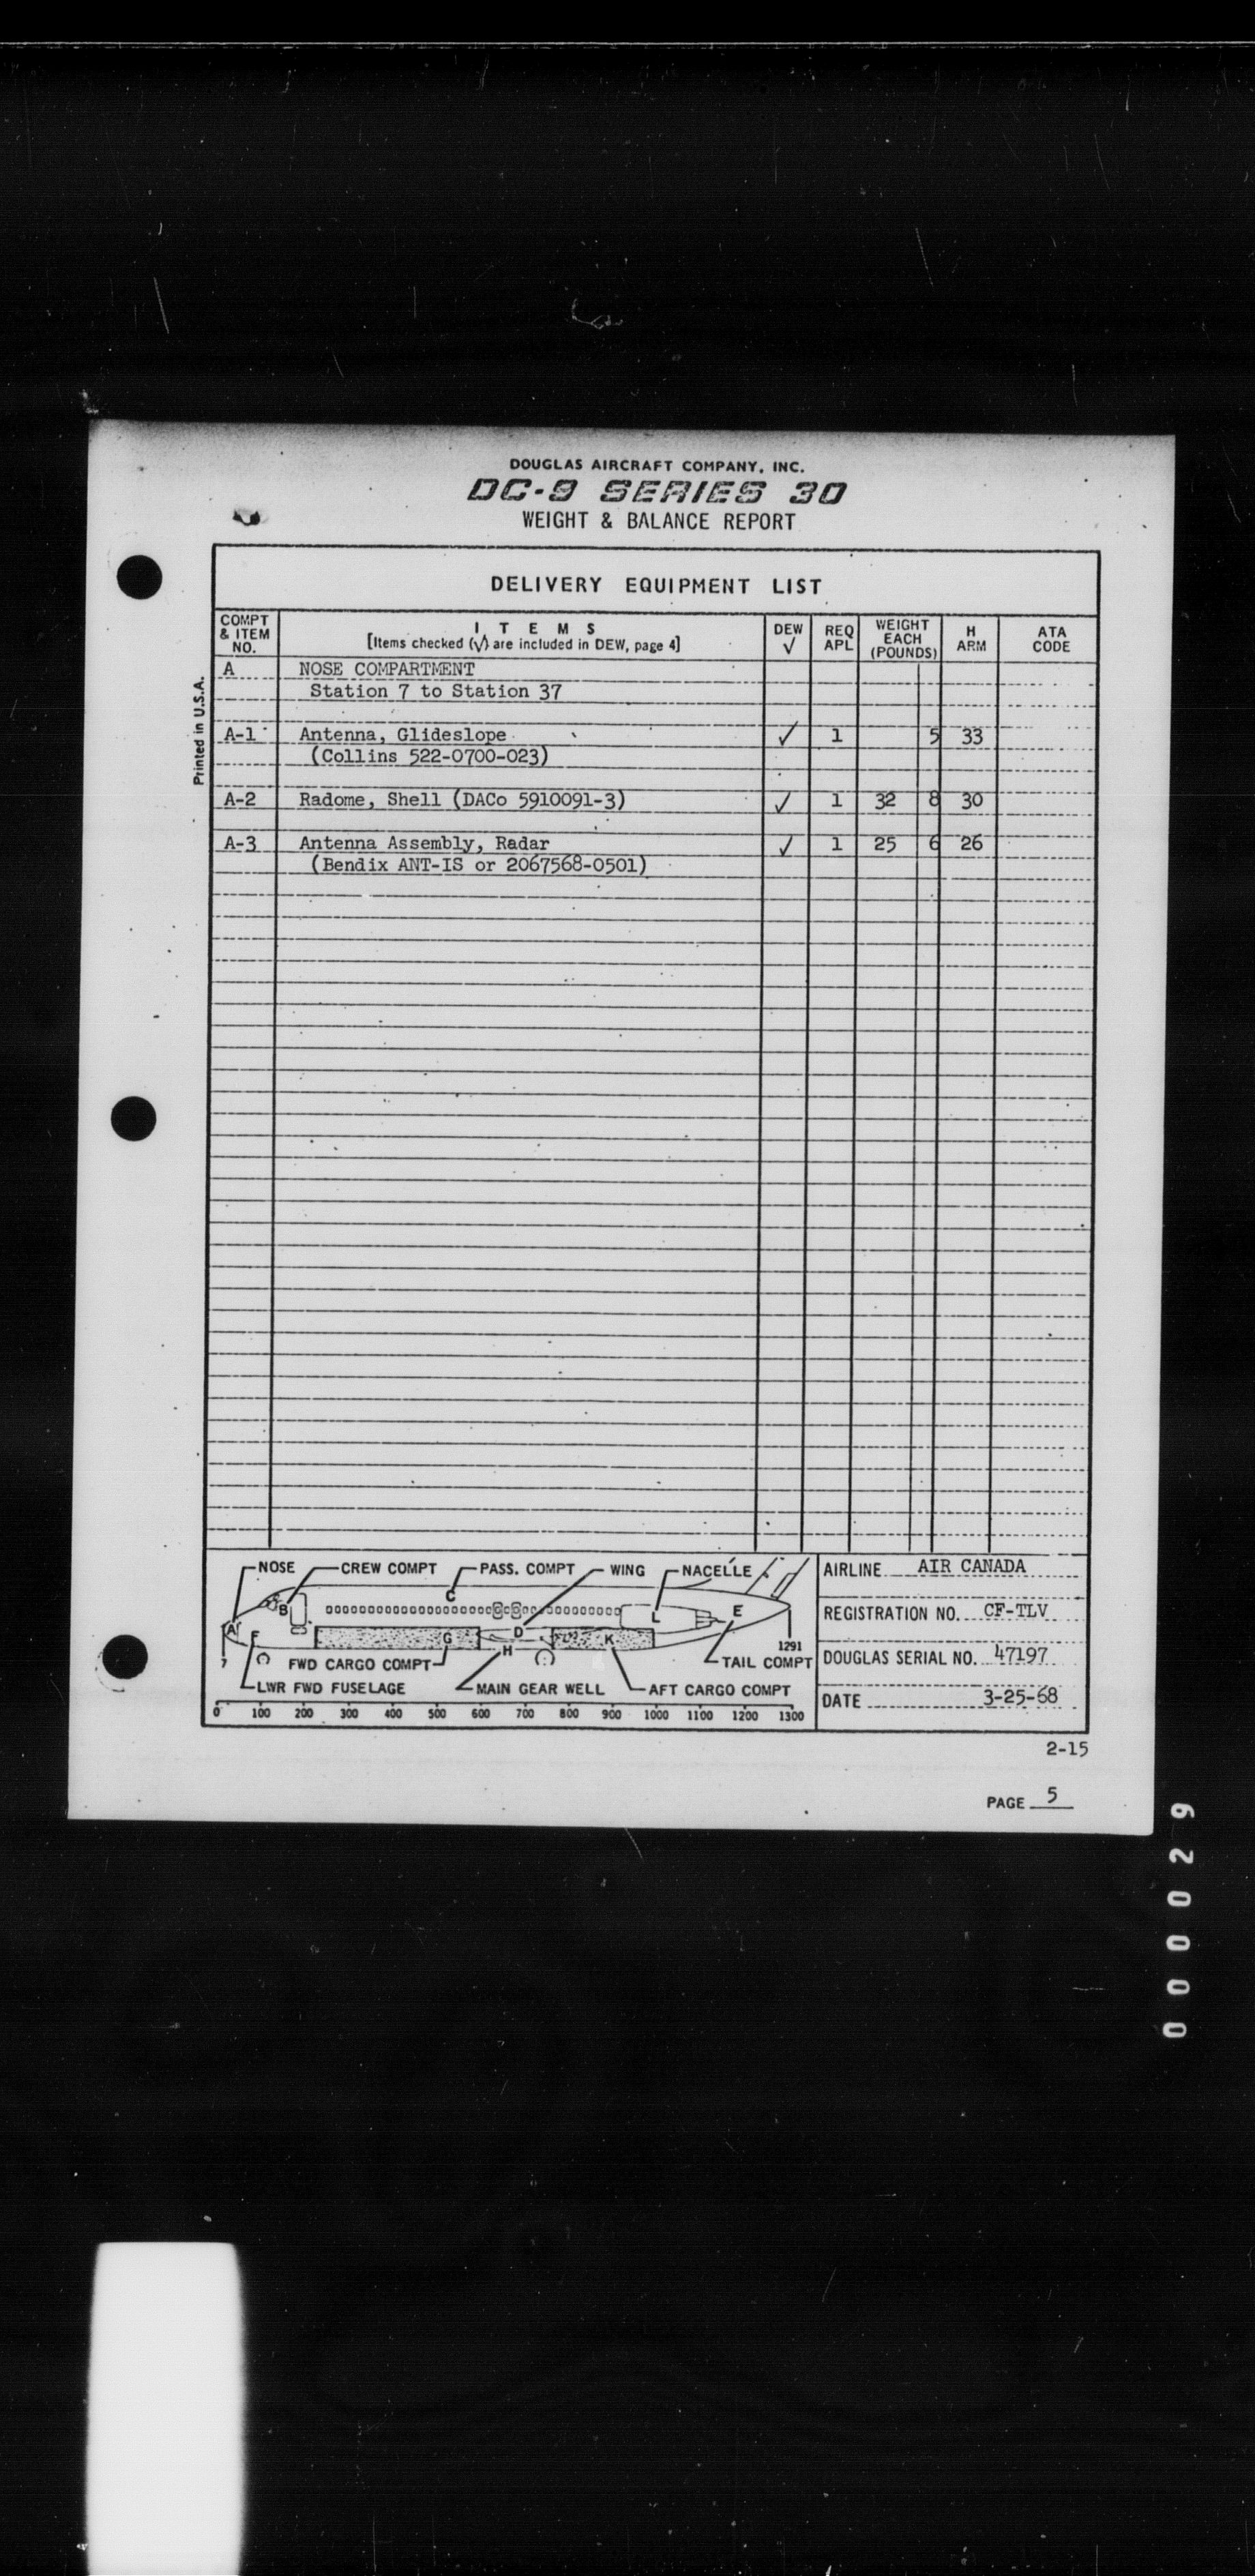 DOUGLAS AIRCRAFT COMPANY, INC.
DC-9 SERIES 30
WEIGHT & BALANCE REPORT
DELIVERY EQUIPMENT LIST
COMPT & ITEM NO. I T E M S [Items checked (√) are included in DEW, page 4] DEW √ REQ APL WEIGHT EACH (POUNDS) H ARM ATA CODE
A NOSE COMPARTMENT
Station 7 to Station 37
A-1 Antenna, Glideslope ✓ 1 5 33
(Collins 522-0700-023)
A-2 Radome, Shell (DACo 5910091-3) ✓ 1 32 8 30
A-3 Antenna Assembly, Radar ✓ 1 25 6 26
(Bendix ANT-IS or 2067568-0501)
Printed in U.S.A.
NOSE CREW COMPT PASS. COMPT WING NACELLE
A B C D E F G H K L
7 1291
FWD CARGO COMPT TAIL COMPT
LWR FWD FUSELAGE MAIN GEAR WELL AFT CARGO COMPT
0 100 200 300 400 500 600 700 800 900 1000 1100 1200 1300
AIRLINE AIR CANADA
REGISTRATION NO. CF-TLV
DOUGLAS SERIAL NO. 47197
DATE 3-25-68
2-15
PAGE 5
000029